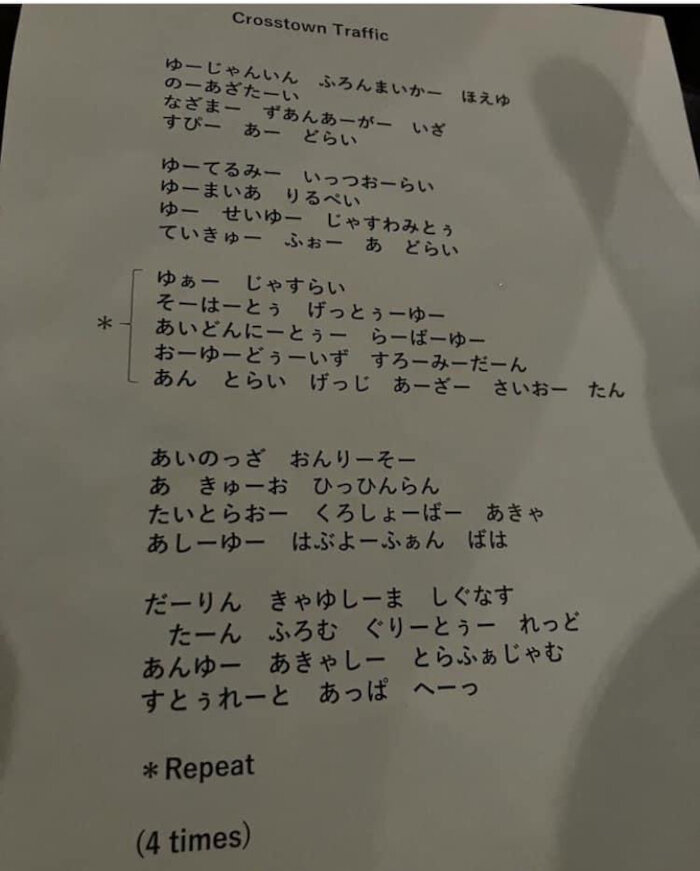 Crosstown Traffic
ゆーじゃんいん　ふろんまいかー　ほえゆ
のーあざたーい
なざまー　ずあんあーがー　いざ
すぴー　あー　どらい
ゆーてるみー　いっつおーらい
ゆーまいあ　りるぺい
ゆー　せいゆー　じゃすわみとぅ
ていきゅー　ふぉー　あ　どらい
*
ゆぁー　じゃすらい
そーはーとぅ　げっとぅーゆー
あいどんにーとぅー　らーばーゆー
おーゆーどぅーいず　すろーみーだーん
あん　とらい　げっじ　あーざー　さいおー　たん
あいのっざ　おんりーそー
あ　きゅーお　ひっひんらん
たいとらおー　くろしょーばー　あきゃ
あしーゆー　はぶよーふぁん　ばは
だーりん　きゃゆしーま　しぐなす
たーん　ふろむ　ぐりーとぅー　れっど
あんゆー　あきゃしー　とらふぁじゃむ
すとぅれーと　あっぱ　へーっ
*Repeat
(4 times)